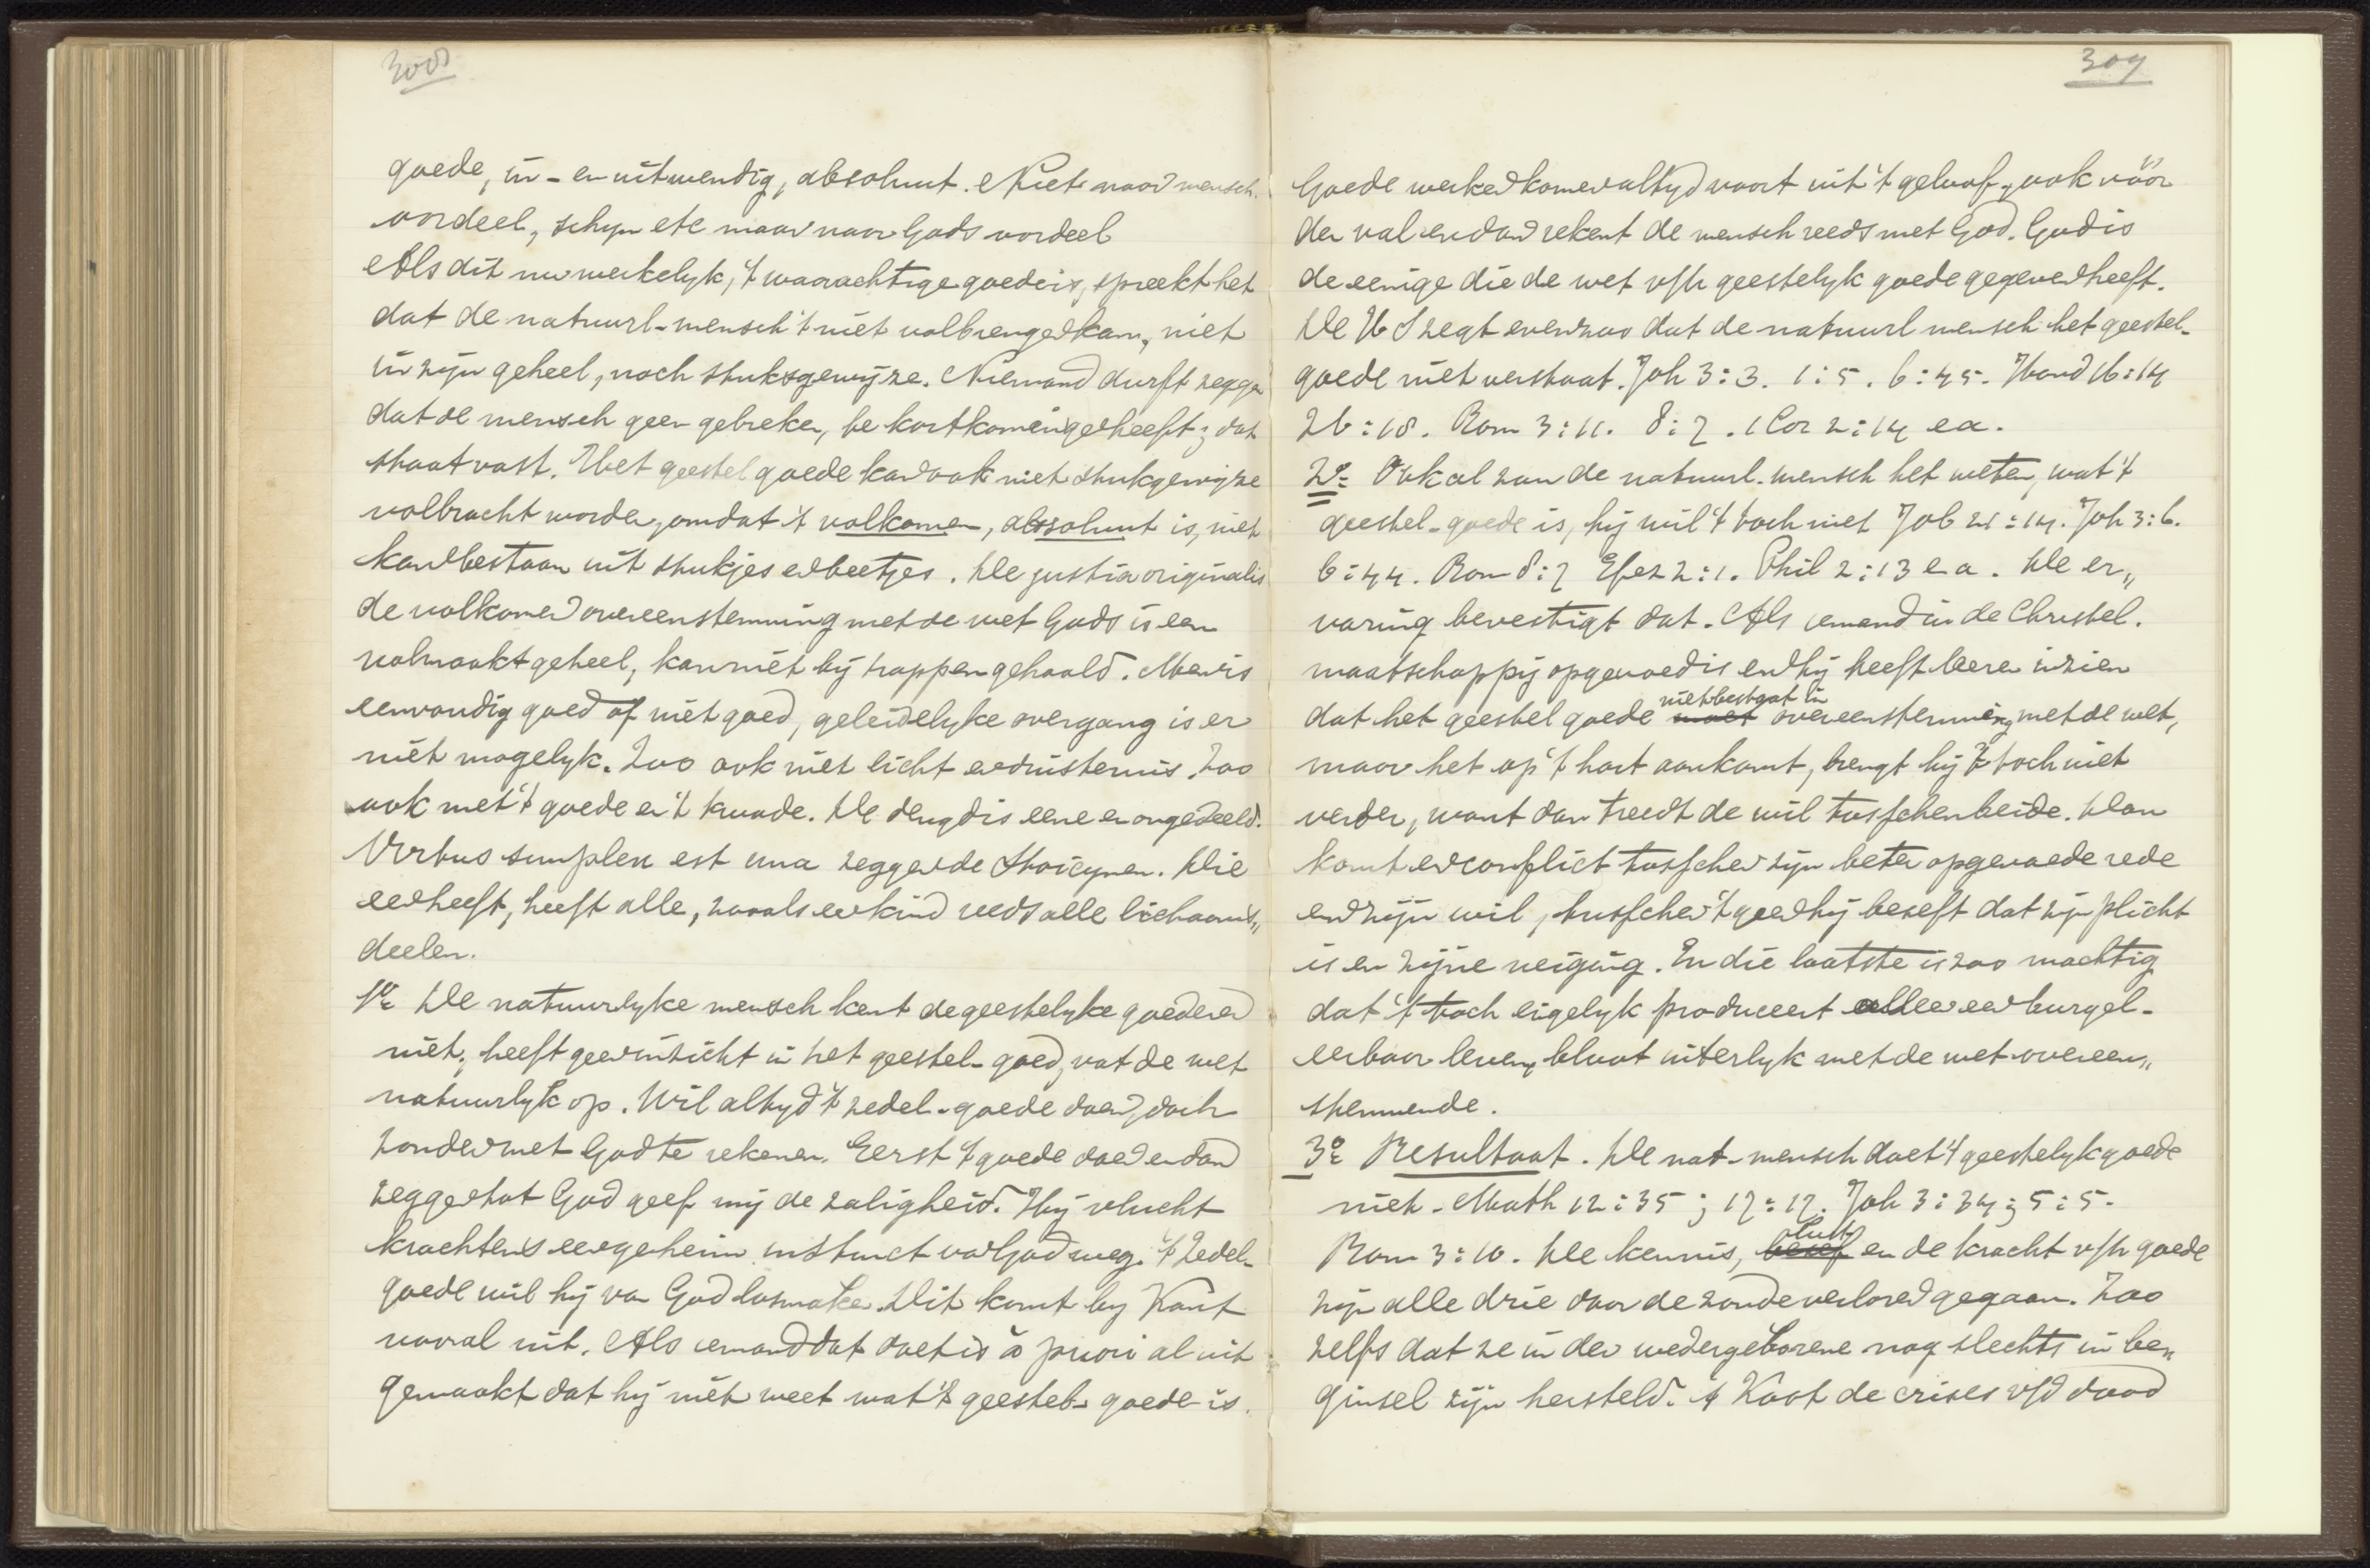 308
goede, in- en uitwendig, absoluut. Niet naar mensch.
oordeel, schijn etc maar naar Gods oordeel
Als dit nu werkelyk, 't waarachtige goede is, spreekt het
dat de natuurl. mensch 't niet volbrengen kan, niet
in zijn geheel, noch stuksgewijze. Niemand durft zeggen
dat de mensch geen gebreken, te kortkomingen heeft; dat
staat vast. Het geestel goede kan ook niet stukgewijze
volbracht worden, omdat 't volkomen, absoluut is, niet
kan bestaan uit stukjes en beetjes. De justitia originalis
de volkomen overeenstemming met de wet Gods is een
volmaakt geheel, kan niet bij trappen gehaald. Men is
eenvoudig goed of niet goed, geleidelyke overgang is er
niet mogelyk. Zoo ook niet licht en duisternis. Zoo
ook met 't goede en 't kwade. De deugd is eene en ongedeeld.
Virtus simplex est una zeggen de Stoicynen. Wie
een heeft, heeft alle, zooals een kind reeds alle lichaams„
deelen.
1o De natuurlyke mensch kent de geestelyke goederen
niet, heeft geen inzicht in het geestel- goed, vat de wet
natuurlyk op. Wil altyd 't zedel- goede doen, doch
zonder met God te rekenen. Eerst 't goede doen en dan
zeggen tot God geef mij de zaligheid. Hij vlucht
krachtens een geheim instinct van God weg. 't Zedel-
goede wil hij van God losmaken. Dit komt by Kant
vooral uit. Als iemand dat doet is a priori al uit
gemaakt dat hij niet weet wat 't geestel- goede is.
309
Goede werken komen altyd voort uit 't geloof, ook vóór
den val en dan rekent de mensch reeds met God. God is
de eenige die de wet v/h geestelyk goede gegeven heeft.
De H S zegt evenzoo dat de natuurl mensch het geestel-
goede niet verstaat. Joh 3:3. 1:5. 6:45. Hand 16:14
26:18. Rom 3:11. 8:7. 1 Cor 2:14 ea.
2o Ook al zou de natuurl. mensch het weten, wat 't
geestel- goede is, hij wil 't toch niet Job 21:14. Joh 3:6.
6:44. Rom 8:7 Efez 2:1. Phil 2:13 ea. De er„
varing bevestigt dat. Als iemand in de Christel.
maatschappij opgevoed is en hij heeft leeren inzien
niet bestaat in
dat het geestel goede moet overeenstemming met de wet,
maar het op 't hart aankomt, brengt hij 't toch niet
verder, want dan treedt de wil tusschenbeide. Dan
komt er conflict tusschen zijn beter opgevoede rede
en zijn wil, tusschen 't geen hij beseft dat zijn plicht
is en zijne neiging. En die laatste is zoo machtig
dat 't toch eigelyk produceert alleen een burgel-
eerbaar leven, bloot uiterlyk met de wet overeen„
stemmende.
3o Resultaat. De nat- mensch doet 't geestelyk goede
niet. Math 12:35; 17:17. Joh 3:34; 5:5.
lust
Rom 3:10. De kennis, besef en de kracht v/h goede
zijn alle drie door de zonde verloren gegaan. Zoo
zelfs dat ze in den wedergeborene nog slechts in be„
ginsel zijn hersteld. de crises v/d dood